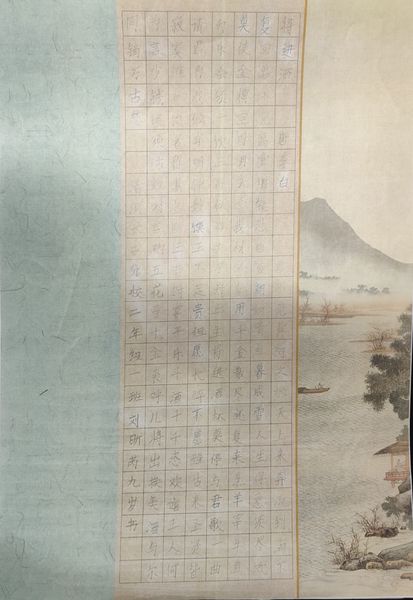 将进酒 唐李白 河之水天上来奔流到海不
复回君不见高堂明镜悲白发朝如青丝暮成雪人生得意须尽欢
莫使金樽空对月天生我材必有用千金散尽还复来烹羊宰牛且
为乐会须一饮三百杯 生将进酒杯莫停与君歌一曲
请君为我倾耳听 馔玉不足贵但愿长醉不愿醒古来圣贤皆
寂寞惟有饮者留其名陈王昔时宴平乐斗酒十千恣欢谑主人何
为言少钱径须沽取对君酌五花马千金裘呼儿将出换美酒与尔
同销万古愁 分校二年级一班刘昕 九岁书